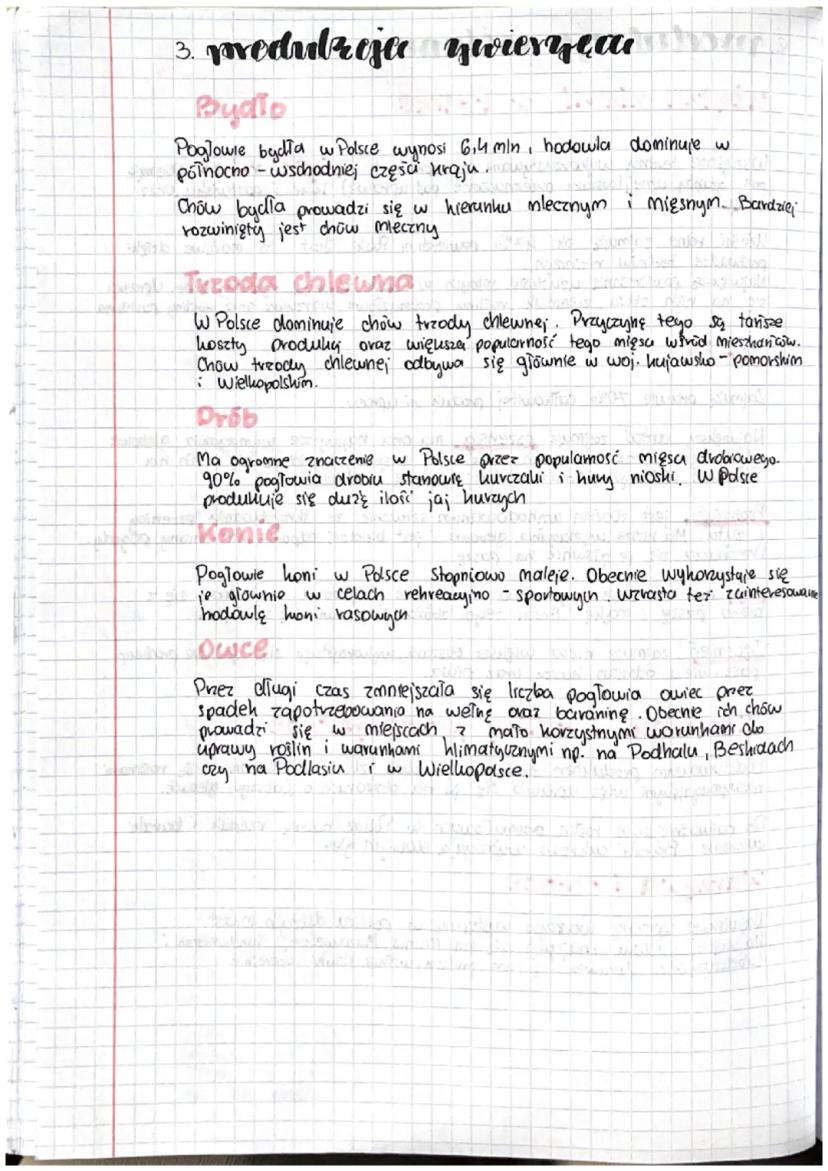 3. produkcja zwierzęca
Bydło
Pogłowie bydła w Polsce wynosi 6,4 mln, hodowla dominuje w
północno-wschodniej części kraju.
Chów bydła prowadzi się w kierunku mlecznym i mięsnym. Bardziej
rozwinięty jest chów mleczny
Trzoda chlewna
W Polsce dominuje chów trzody chlewnej. Przyczyną tego są tańsze
koszty produkcji oraz większa popularność tego mięsa wśród mieszkańców.
Chów trzody chlewnej odbywa się głównie w woj. kujawsko-pomorskim
i Wielkopolskim.
Drób
Ma ogromne znaczenie w Polsce przez popularność mięsa drobiowego.
90% pogłowia drobiu stanowią kurczaki i kury nioski. W Polsce
produkuje się dużą ilość jaj kurzych
Konie
Pogłowie koni w Polsce stopniowo maleje. Obecnie wykorzystuje się
je głównie w celach rekreacyjno-sportowych. wzrasta też zainteresowanie
hodowlą koni rasowych
Owce
Przez długi czas zmniejszała się liczba pogłowia owiec przez
spadek zapotrzebowania na wełnę oraz baraninę. Obecnie ich chów
prowadzi się w miejscach z mało korzystnymi warunkami do
uprawy roślin i warunkami klimatycznymi np. na Podhalu, Beskidach
czy na Podlasiu i w Wielkopolsce.